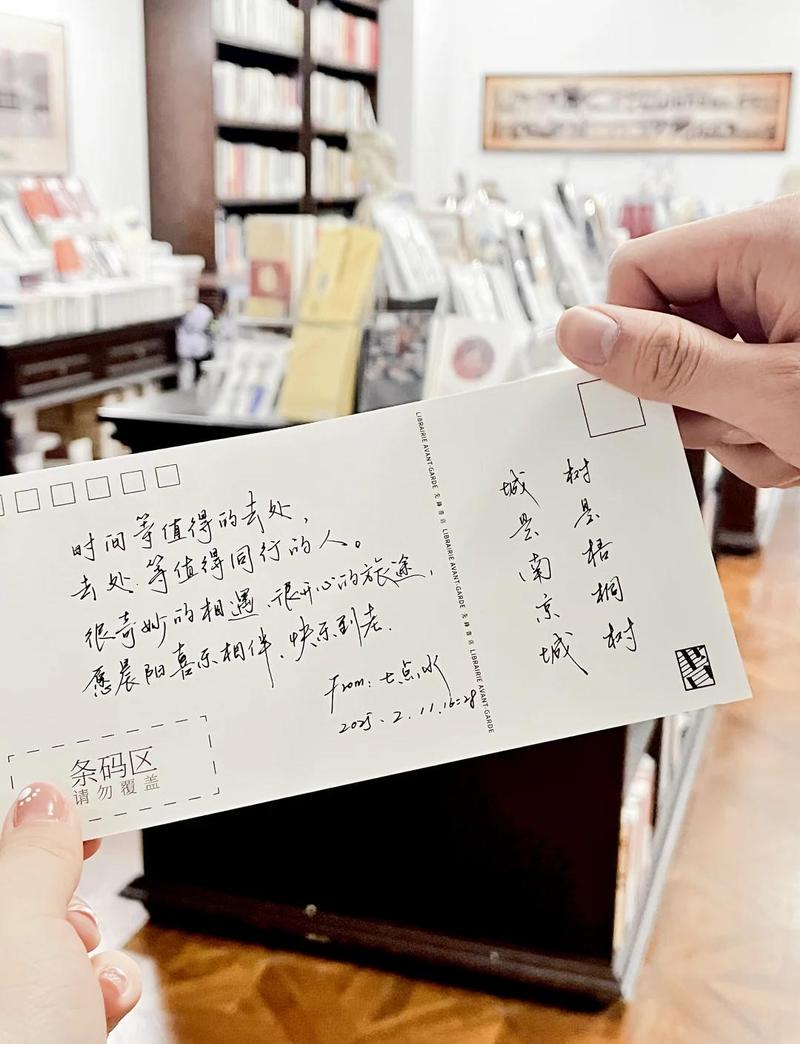 时间等值得的去处,
去处.等值得同行的人。
很奇妙的相遇、很开心的旅途,
愿晨阳喜乐相伴、快乐到老.
From: 七点水
2025.2.11.16:28
条码区
请勿覆盖
LIBRAIRIE AVANT-GARDE 先锋书店 LIBRAIRIE AVANT-GARDE 先锋书店 LIBRAIRIE AVANT-GARDE
树是梧桐树
城是南京城